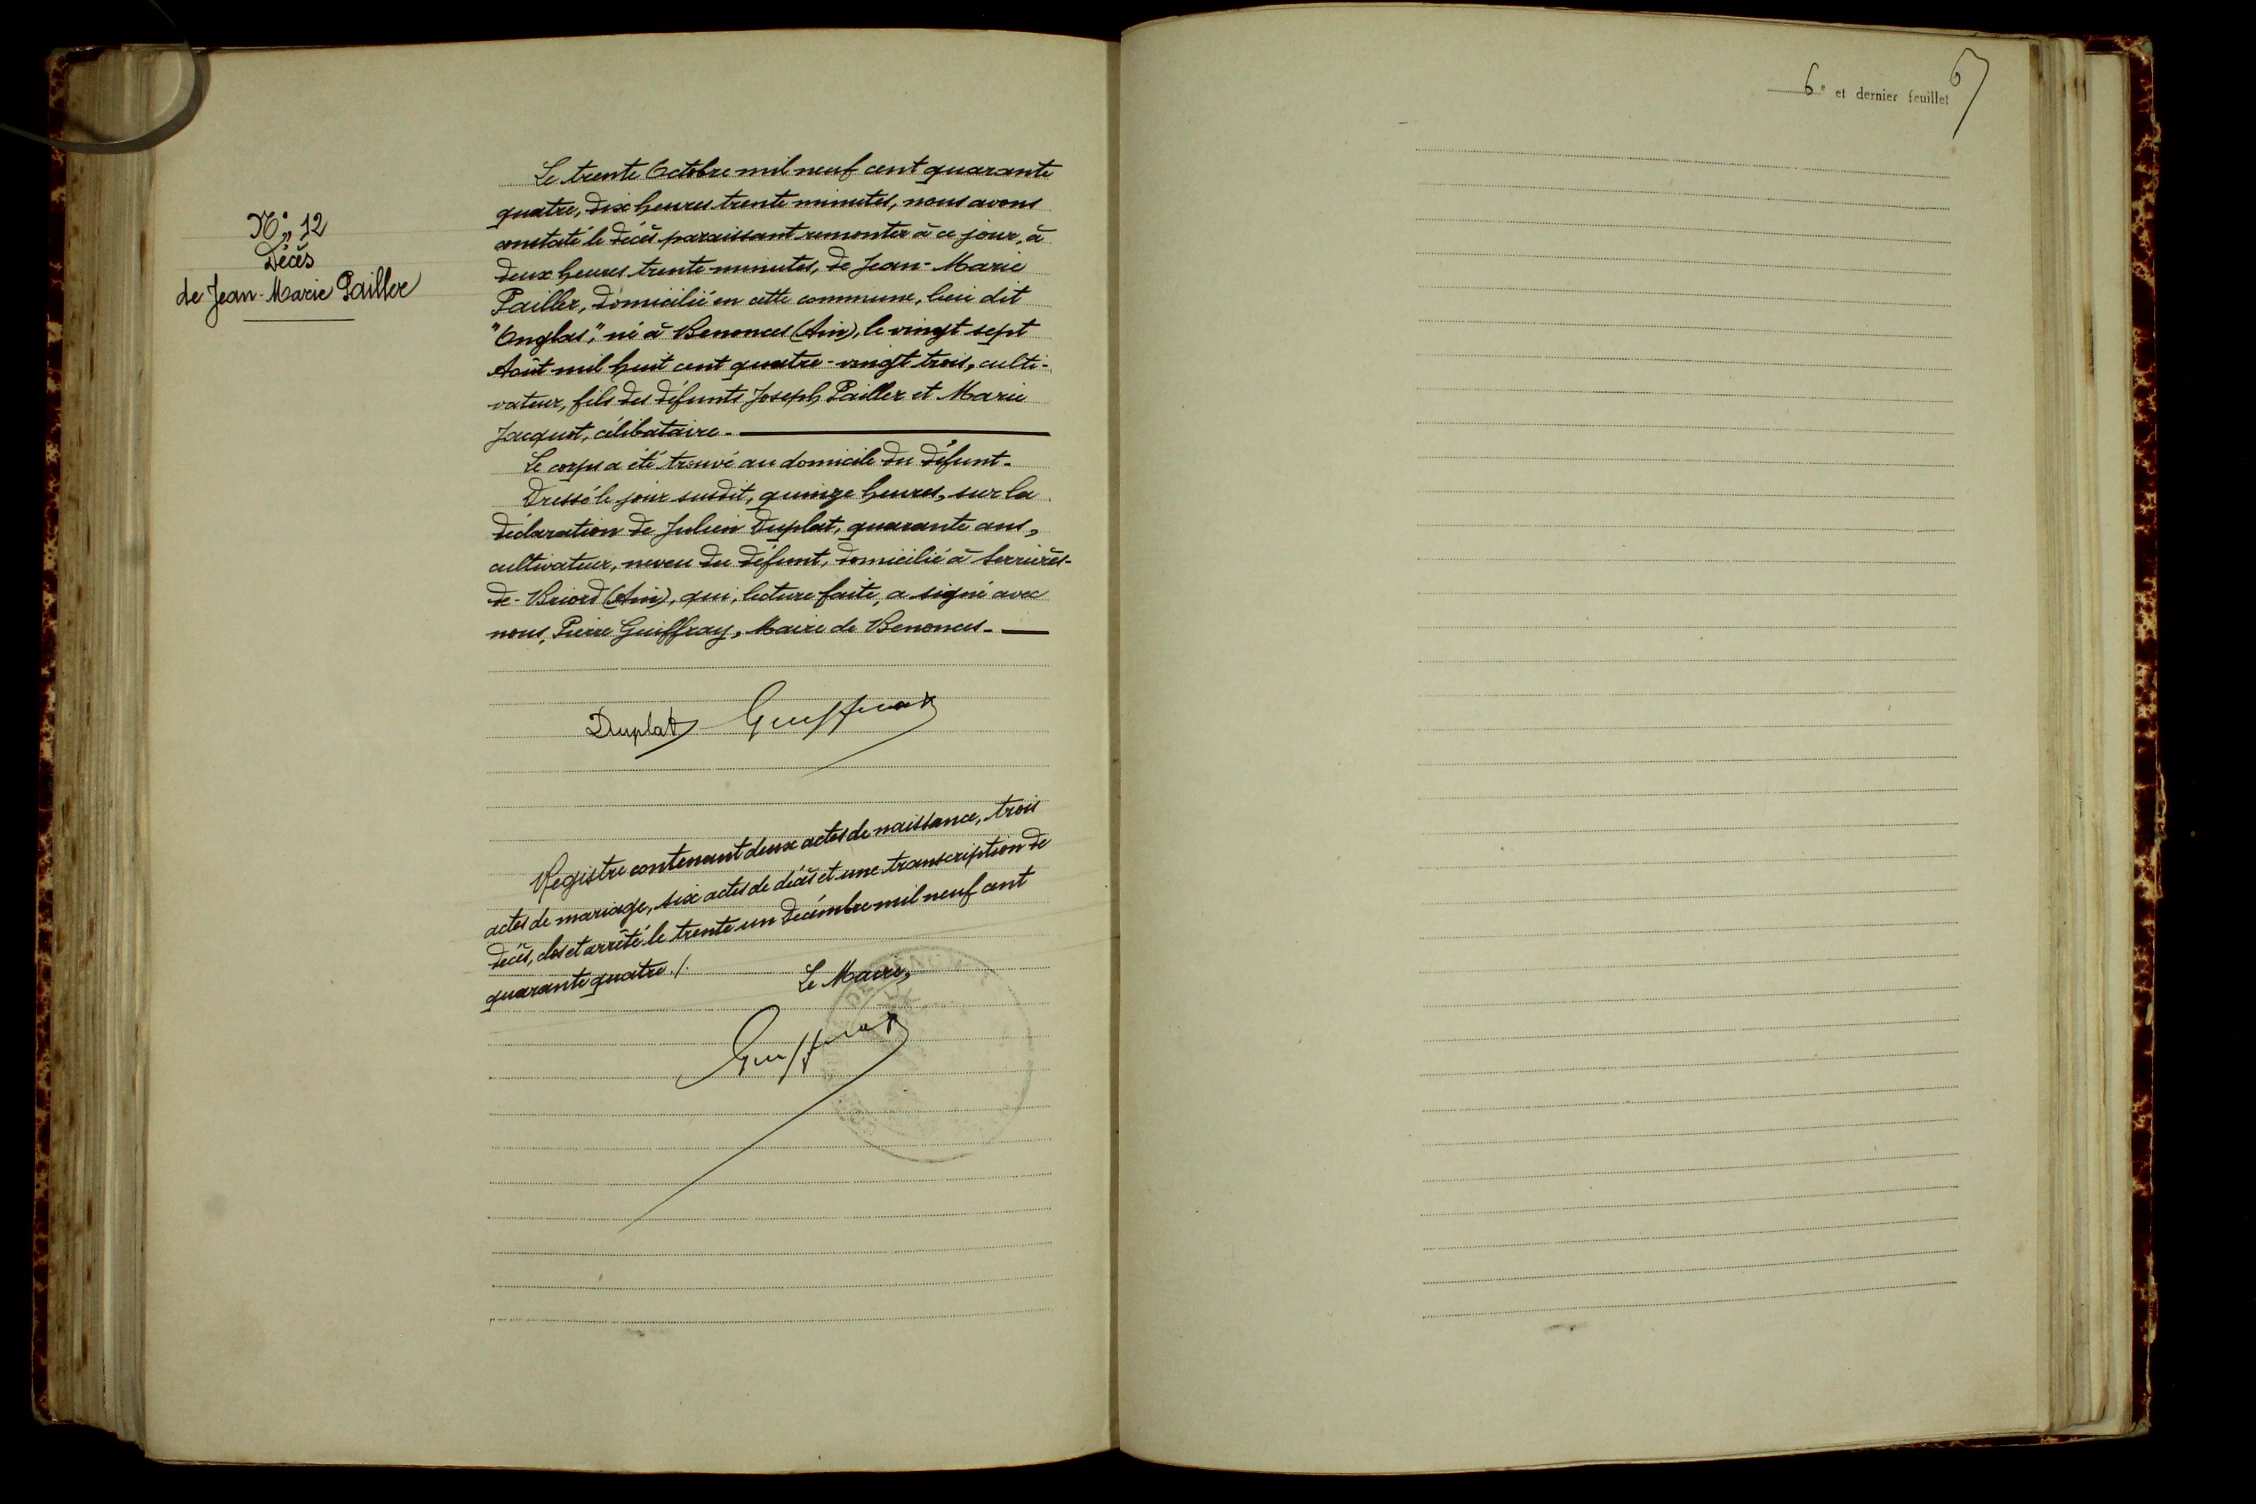 N° 12
Décès
de Jean-Marie Pailler
Le trente Octobre mil neuf cent quarante
quatre, dix heures trente minutes, nous avons
constaté le décès paraissant remonter à ce jour, à
deux heures trente minutes, de Jean-Marie
Pailler, domicilié en cette commune, lieu dit
"Onglas", né à Benonces (Ain), le vingt sept
Août mil huit cent quatre-vingt trois, culti-
vateur, fils des défunts Joseph Pailler et Marie
Jacquot, célibataire.
Le corps a été trouvé au domicile du défunt.
Dressé le jour susdit, quinze heures, sur la
déclaration de Julien Duplat, quarante ans,
cultivateur, neveu du défunt, domicilié à Serrières-
de-Briord (Ain), qui, lecture faite, a signé avec
nous, Pierre Guiffray, Maire de Benonces.
Duplat Guiffray
Registre contenant deux actes de naissance, trois
actes de mariage, six actes de décès et une transcription de
décès, clos et arrêté le trente un Décembre mil neuf cent
quarante quatre ./.
Le Maire,
Guiffray
6e et dernier feuillet
67